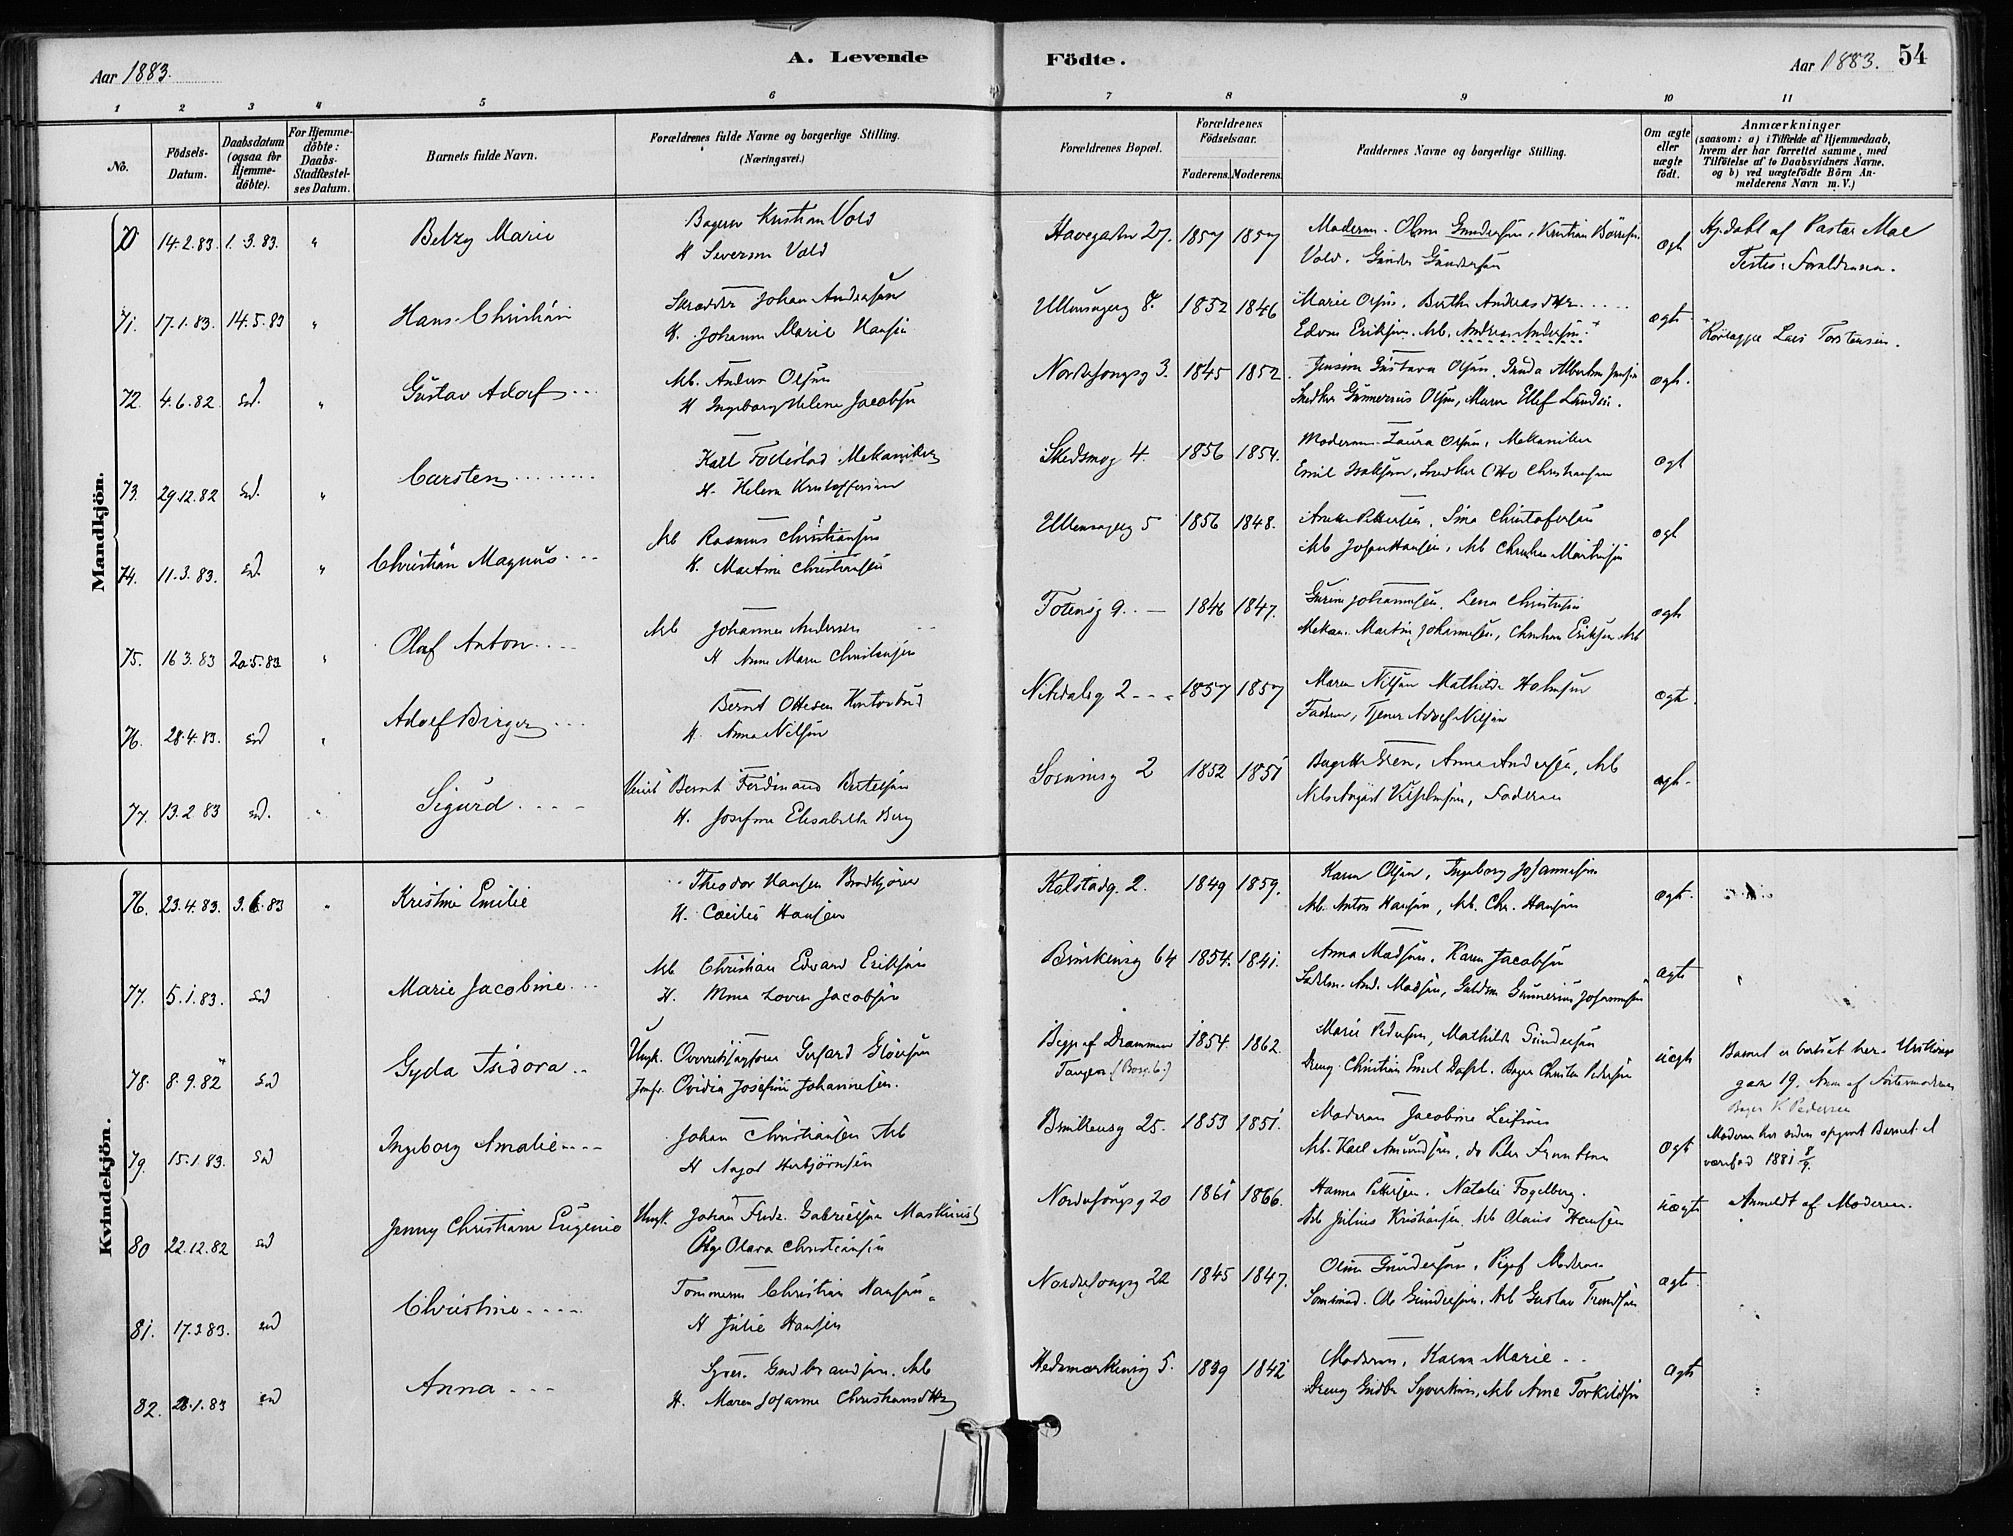 Aar 1883.
A. Levende
Födte.
Aar 1883.
54
1 2 3 4 5 6 7 8 9 10 11
No.
Födsels-Datum.
Daabsdatum (ogsaa for Hjemme-döbte).
For Hjemme-döbte: Daabs-Stadfæstel-ses Datum.
Barnets fulde Navn.
Forældrenes fulde Navne og borgerlige Stilling. (Næringsvei.)
Forældrenes Bopæl.
Forældrenes Födselsaar.
Faderens. Moderens.
Faddernes Navne og borgerlige Stilling.
Om ægte eller uægte födt.
Anmærkninger
(saasom: a) i Tilfælde af Hjemmedaab, hvem der har forrettet samme, med Tilföielse af to Daabsvidners Navne, og b) ved uægtefödte Börn An-melderens Navn m. V.)
Mandkjön.
70 14.2.83. 1.3.83. " Betzy Marie
Bager Kristian Vold
H Severine Vold
Havegaden 27. 1857 1857
Moderen. Oline Gundersen, Kristian
Vold. Gunder Gundersen
ægte
Hj.døbt af Pastor Moe
Testes: Forældrene.
71. 17.1.83. 14.5.83 " Hans Christian
Skrædder Johan Andersen
H. Johanne Marie Hansen
Ullensagerg 8. 1852 1846
Marie Olsen, Berthe Andreasdtter
Edvin Eriksen. Arb. Andreas Andersen.
ægte
Rørlægger Lars Torstensen.
72. 4.6.82. sd. " Gustav Adolf
Arb. Anders Olsen
H Ingeborg Helene Jacobsen
Nordrehougsg 3. 1845 1852.
Gustava Olsen, Gunda Albertine Jensen
Snedker Gunnerius Olsen, Murer Ellef Landsen.
ægte.
73. 29.12.82 sd. " Carsten
Karl Follestad Mekaniker
H. Helene Kristoffersen
Skedsmog 4. 1856 1854.
Moderen. Laura Olsen, Mekaniker
Emil Isaksen, Snedker Otto Christiansen
ægt
74. 11.3.83. sd. " Christian Magnus
Arb Rasmus Christiansen
H. Martine Christiansen
Ullensagerg 5 1856 1848.
Anette Pettersen, Sina Christofersen
Arb Johan Hansen, Arb Christian Martinsen
ægt
75. 16 3.83 20.5.83 " Olaf Anton
Arb Johannes Andersen
H Anne Marie Christensen
Totensg 9. 1846 1847.
Gurine Johannesen, Lena Christensen
Mekan. Martin Johannesen, Christian Eriksen Arb
ægte
76. 28.4.83. sd " Adolf Birger
Bernt Ottesen Kontorbud
H. Anna Nilsen
Nitedalsg 2 1857 1857
Maren Nilsen Mathilde Holmsen
Faderen, Tjener Adolf Nilsen
ægt.
77. 13.2 83 sd. " Sigurd
Bernt Ferdinand Bertelsen
H. Josefine Elisabeth Berg
Sørumsg 2 1852 1851
Anna Andersen, Arb
Nels August Vilhelmsen, Faderen
ægt.
Kvindekjön.
76. 23.4.83. 3.6.83 " Kristine Emilie
Theodor Hansen Brødkjører
H. Cæcilie Hansen
Kalstadg. 2. 1849 1859.
Karen Olsen, Ingeborg Johannesen
Arb. Anton Hansen, Arb. Chr. Hansen
ægt.
77. 5.1.83. sd Marie Jacobine
Arb Christian Edvard Eriksen
H. Lovise Jacobsen
Brinkensg 64 1854. 1841.
Anna Madsen, Karen Jacobsen
And. Madsen, Guldsm Gunnerius Johannesen
ægt "
78. 8.9.82 sd Gyda Isidora
Ungk. Gerhard Eliassen
Jmfr. Ovidia Josefine Johannesen.
Begge af Drammen Tangen (Borg. 6.) 1854. 1862.
Marie Pedersen, Mathilde Gundersen
Dreng Christian Emil Dahl. Bager Christen Pedersen
uægte
Barnet er bortsat her.
gaden 19. Anm af Fostermoderen
Bager K. Pedersen
79. 15.1.83. sd Ingeborg Amalie
Johan Christiansen Arb
H Aagot Herbjørnsen
Brinkensg 25. 1853 1851.
Moderen Jacobine Leifsen
Arb. Karl Amundsen, do Peter
ægt
Moderen har siden opgivet Barnet at
være fød 1881 8/9.
80 22.12.82 sd Jenny Christiane Eugenie
Ungk. Johan Fredr. Gabrielsen Maskinist
Pige Olava Christiansen
Nordrehougsg 20 1861 1866.
Hanna Pettersen, Natalie Fogelberg.
Arb Julius Kristiansen, Arb Olaus Hansen
uægte
Anmeldt af Moderen.
81. 17.3.83. sd Christine
Tømmerm Christian Hansen
H Julie Hansen
Nordrehougsg 22 1845 1847.
Oline Gundersen, Pige Moderen
Sømmand. Ole Gundersen, Arb Gustav Trondsen
ægt
82. 28.1.83 sd Anna
Syver. Gudbrandsen. Arb
H. Maren Johanne Christiansdtter
Hedemarkensg 5. 1839 1842
Moderen, Karen Marie
Dreng Gudbr. Syvertsen, Arb Arne Torkildsen
ægte